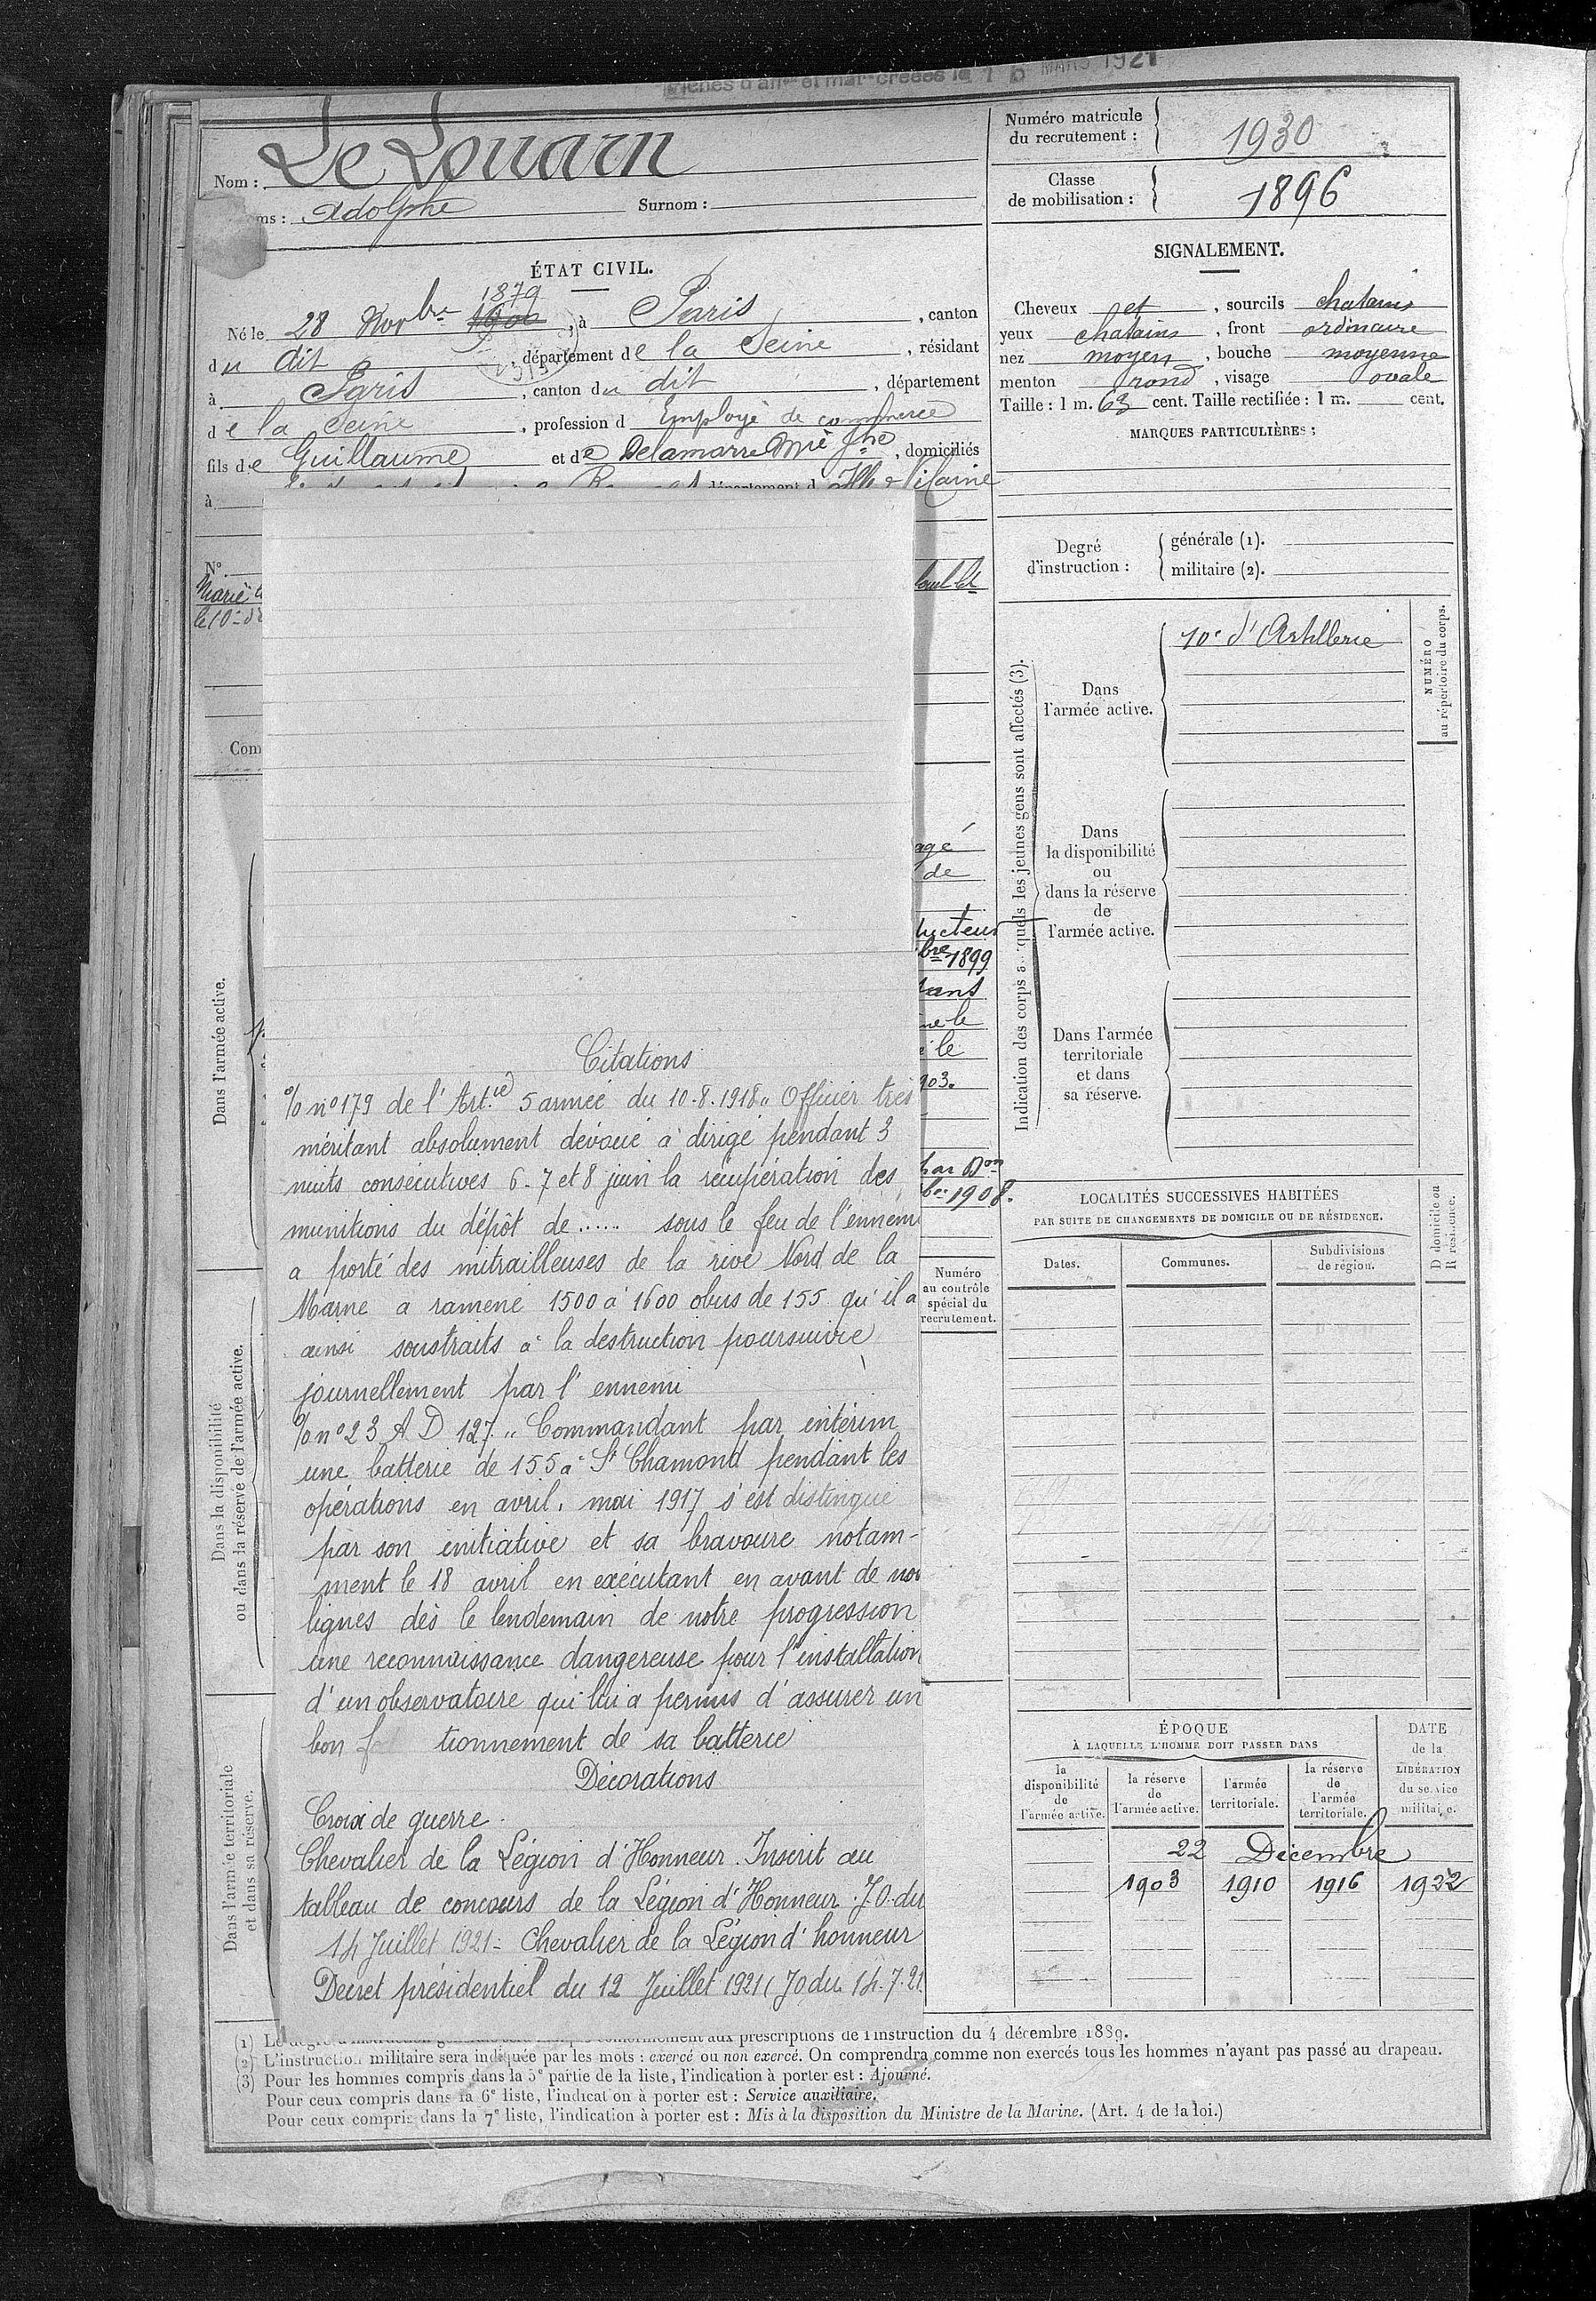 MARS 1921
Nom : Le Louarn
Adolphe Surnom :
Numéro matricule du recrutement : 1930
Classe de mobilisation : 1896
ÉTAT CIVIL.
1879
Né le 28 9bre 1900, à Paris, canton
du dit, département de la Seine, résidant
à Paris, canton du dit, département
de la Seine, profession d Employé de commerce
fils de Guillaume et de Delamarre, domiciliés
à département d Ille & Vilaine
N°
Marié
SIGNALEMENT.
Cheveux et, sourcils chatains
yeux chatains, front ordinaire
nez moyen, bouche moyenne
menton rond, visage ovale
Taille : 1 m. 63 cent. Taille rectifiée : 1 m. cent.
MARQUES PARTICULIÈRES :
Degré d'instruction :
générale (1).
militaire (2).
Indication des corps auxquels les jeunes gens sont affectés (3).
Dans l'armée active.
10e d'Artillerie
NUMÉRO au répertoire du corps.
Dans
la disponibilité
ou
dans la réserve
de
l'armée active.
Dans l'armée
territoriale
et dans
sa réserve.
agé
de
bre 1899
ne le
le
903.
1908.
Dans l'armée active.
Dans la disponibilité
ou dans la réserve de l'armée active.
Dans l'armée territoriale
et dans sa réserve.
Numéro
au contrôle
spécial du
recrutement.
Citations
% n° 179 de l'Artie 5 armée du 10.8.1918 „ Officier très
méritant absolument dévoué a dirigé pendant 3
nuits consécutives 6-7 et 8 juin la récupération des
munitions du dépôt de ...... sous le feu de l'ennemi
a porté des mitrailleuses de la rive Nord de la
Marne a ramené 1500 à 1600 obus de 155 qu'il a
ainsi soustraits à la destruction poursuivie
journellement par l'ennemi
% n° 23 A D 127 „ Commandant par intérim
une batterie de 155 a St Chamond pendant les
opérations en avril, mai 1917 s'est distingué
par son initiative et sa bravoure notam-
ment le 18 avril en exécutant en avant de nos
lignes dès le lendemain de notre progression
une reconnaissance dangereuse pour l'installation
d'un observatoire qui lui a permis d'assurer un
bon fo tionnement de sa batterie
Décorations
Croix de guerre.
Chevalier de la Légion d'Honneur. Inscrit au
tableau de concours de la Légion d'Honneur. J.O. du
14 Juillet 1921 - Chevalier de la Légion d'honneur
Decret présidentiel du 12 Juillet 1921 (JO du 14.7.21
LOCALITÉS SUCCESSIVES HABITÉES
PAR SUITE DE CHANGEMENTS DE DOMICILE OU DE RÉSIDENCE.
D domicile ou
R résidence.
Dates. Communes. Subdivisions de région.
ÉPOQUE
À LAQUELLE L'HOMME DOIT PASSER DANS
DATE de la LIBÉRATION du service militaire.
la disponibilité de l'armée active.
la réserve de l'armée active.
l'armée territoriale.
la réserve de l'armée territoriale.
22 Décembre
1903 1910 1916 1922
(1) Le degré d'instruction aux prescriptions de l'instruction du 4 décembre 1889.
(2) L'instruction militaire sera indiquée par les mots : exercé ou non exercé. On comprendra comme non exercés tous les hommes n'ayant pas passé au drapeau.
(3) Pour les hommes compris dans la 5e partie de la liste, l'indication à porter est : Ajourné.
Pour ceux compris dans la 6e liste, l'indication à porter est : Service auxiliaire.
Pour ceux compris dans la 7e liste, l'indication à porter est : Mis à la disposition du Ministre de la Marine. (Art. 4 de la loi.)